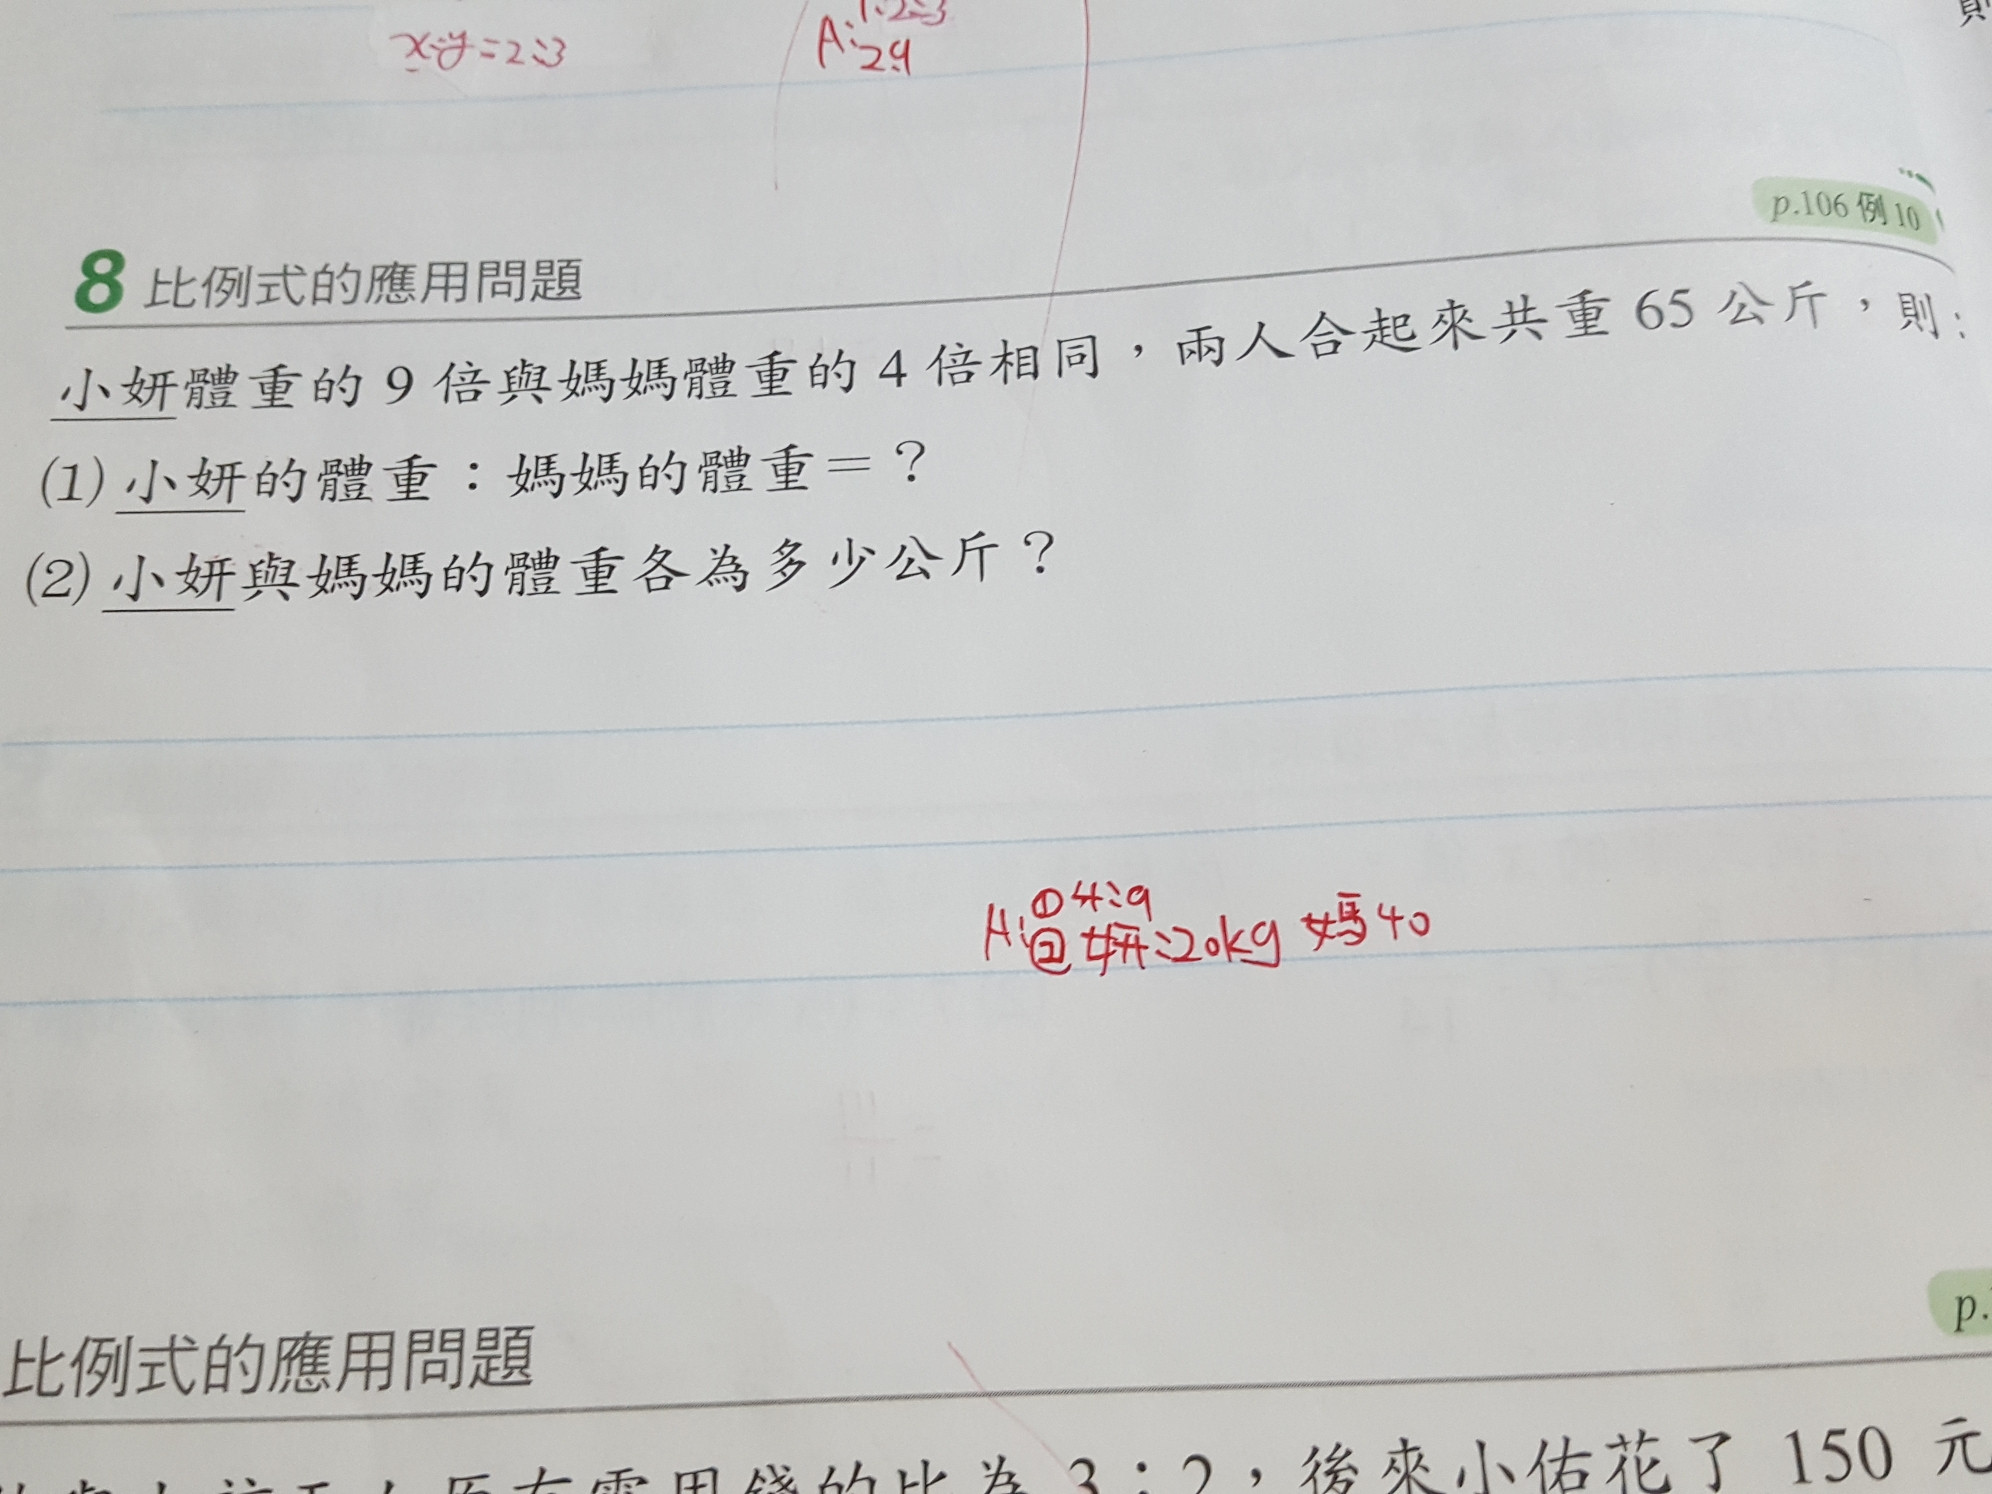 則
x:y=2:3
1:2:3
A:
29
p.106例10
8 比例式的應用問題
小妍體重的9倍與媽媽體重的4倍相同，兩人合起來共重65公斤，則：
(1) 小妍的體重：媽媽的體重＝？
(2) 小妍與媽媽的體重各為多少公斤？
①4:9
A:②妍:20kg 媽40
p.
比例式的應用問題
的比為3：2，後來小佑花了150元